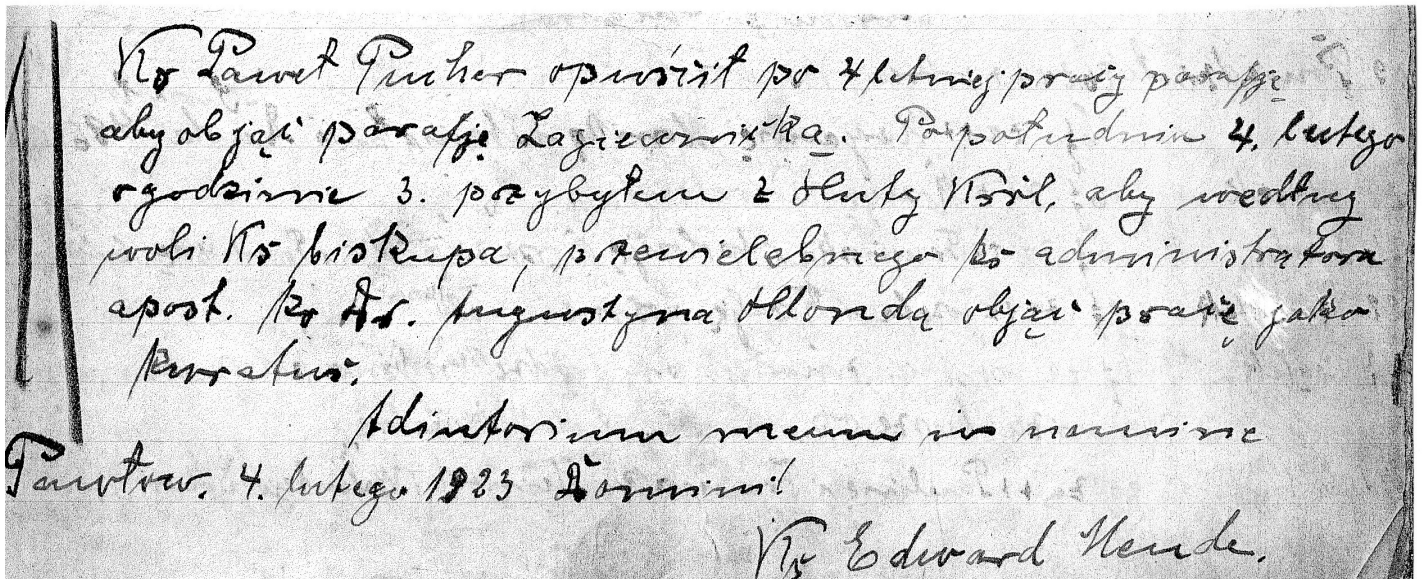 Ks Paweł Pucher opuścił po 4 letniej pracy parafję
aby objąć parafję Łagiewnicką. Popołudniu 4. lutego
o godzinie 3. przybyłem z Huty Król, aby według
woli Ks biskupa, przewielebnego ks administratora
apost. ks Dr. Augustyna Hlonda objąć pracę jako
kuratus.
Adiutorium meum in nomine
Pawłow. 4. lutego 1923 Domini!
Ks Edward Mende.